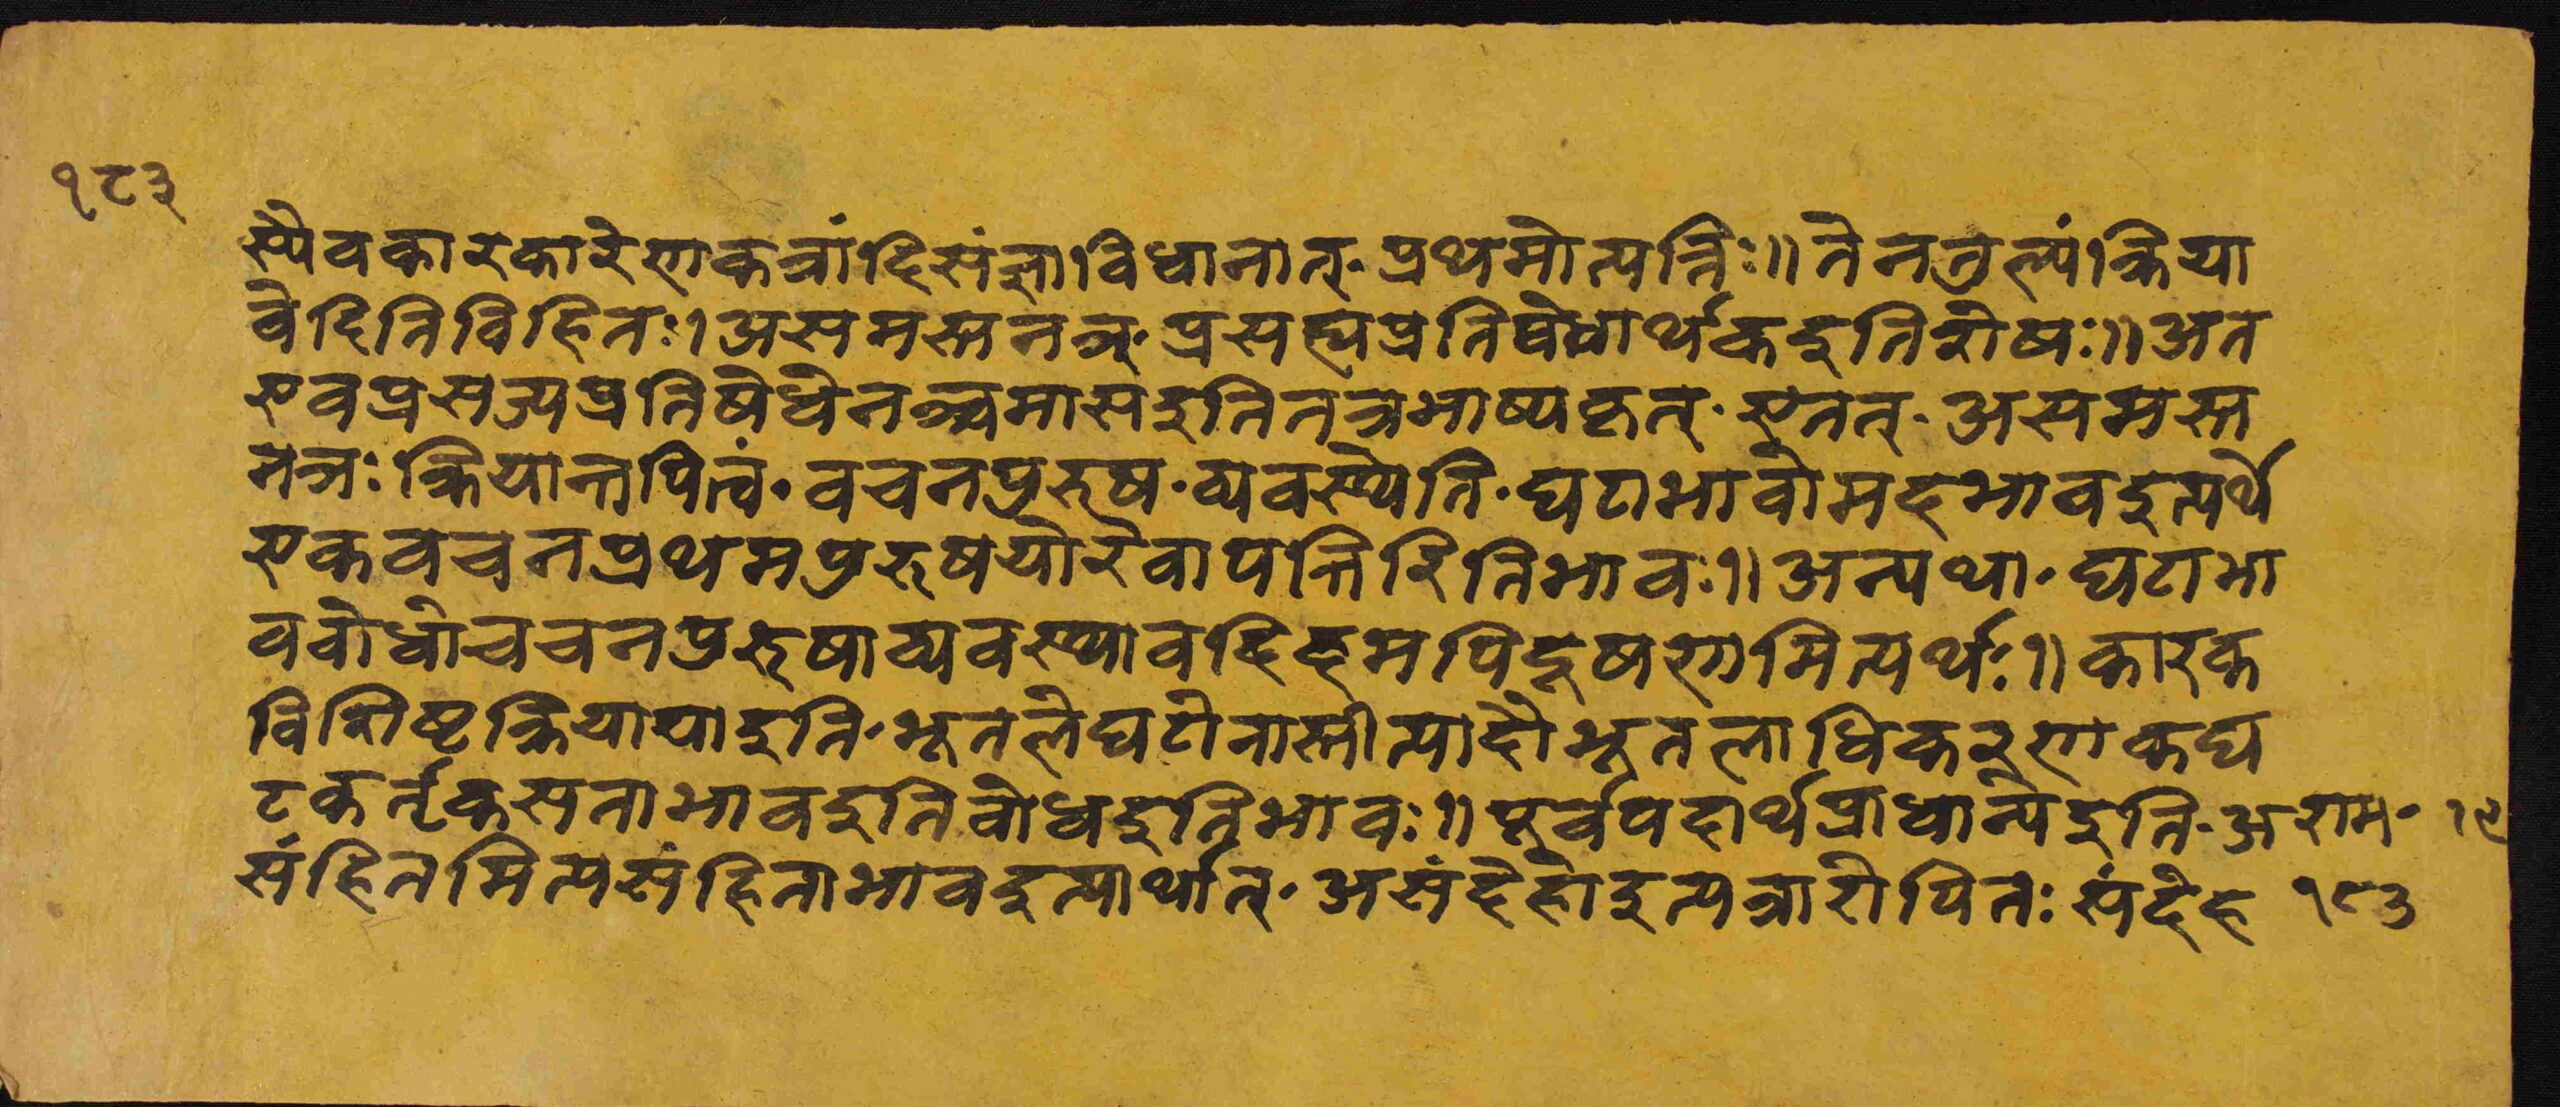 १८३
स्यैवकारकारेणकर्त्रादिसंज्ञाविधानात्· प्रथमोत्पत्तिः॥ तेनतुल्यंक्रिया
वेदितिविहितः। असमस्तनञ्· प्रसह्यप्रतिषेधार्थकइतिशेषः॥ अत
एवप्रसज्यप्रतिषेधेनञ्समासइतितत्रभाष्यकृत्· एतत्· असमस्त
नञः क्रियान्वयित्वं· वचनपुरुष· व्यवस्थेति· घटाभावोमदभावइत्यर्थे
एकवचनप्रथमपुरुषयोरेवापत्तिरितिभावः॥ अन्यथा· घटाभा
वबोधेवचनपुरुषाव्यवस्थावदिदमपिदूषणमित्यर्थः॥ कारक
विशिष्टक्रियायाइति· भूतलेघटोनास्तीत्यादौभूतलाधिकरणकघ
टकर्तृकसत्ताभावइतिबोधइतिभावः॥ पूर्वपदार्थप्राधान्यइति· अ राम· १९
संहितमित्यसंहिताभावइत्यार्थात्· असंदेहोइत्यत्रारोपितः संदेह १८३